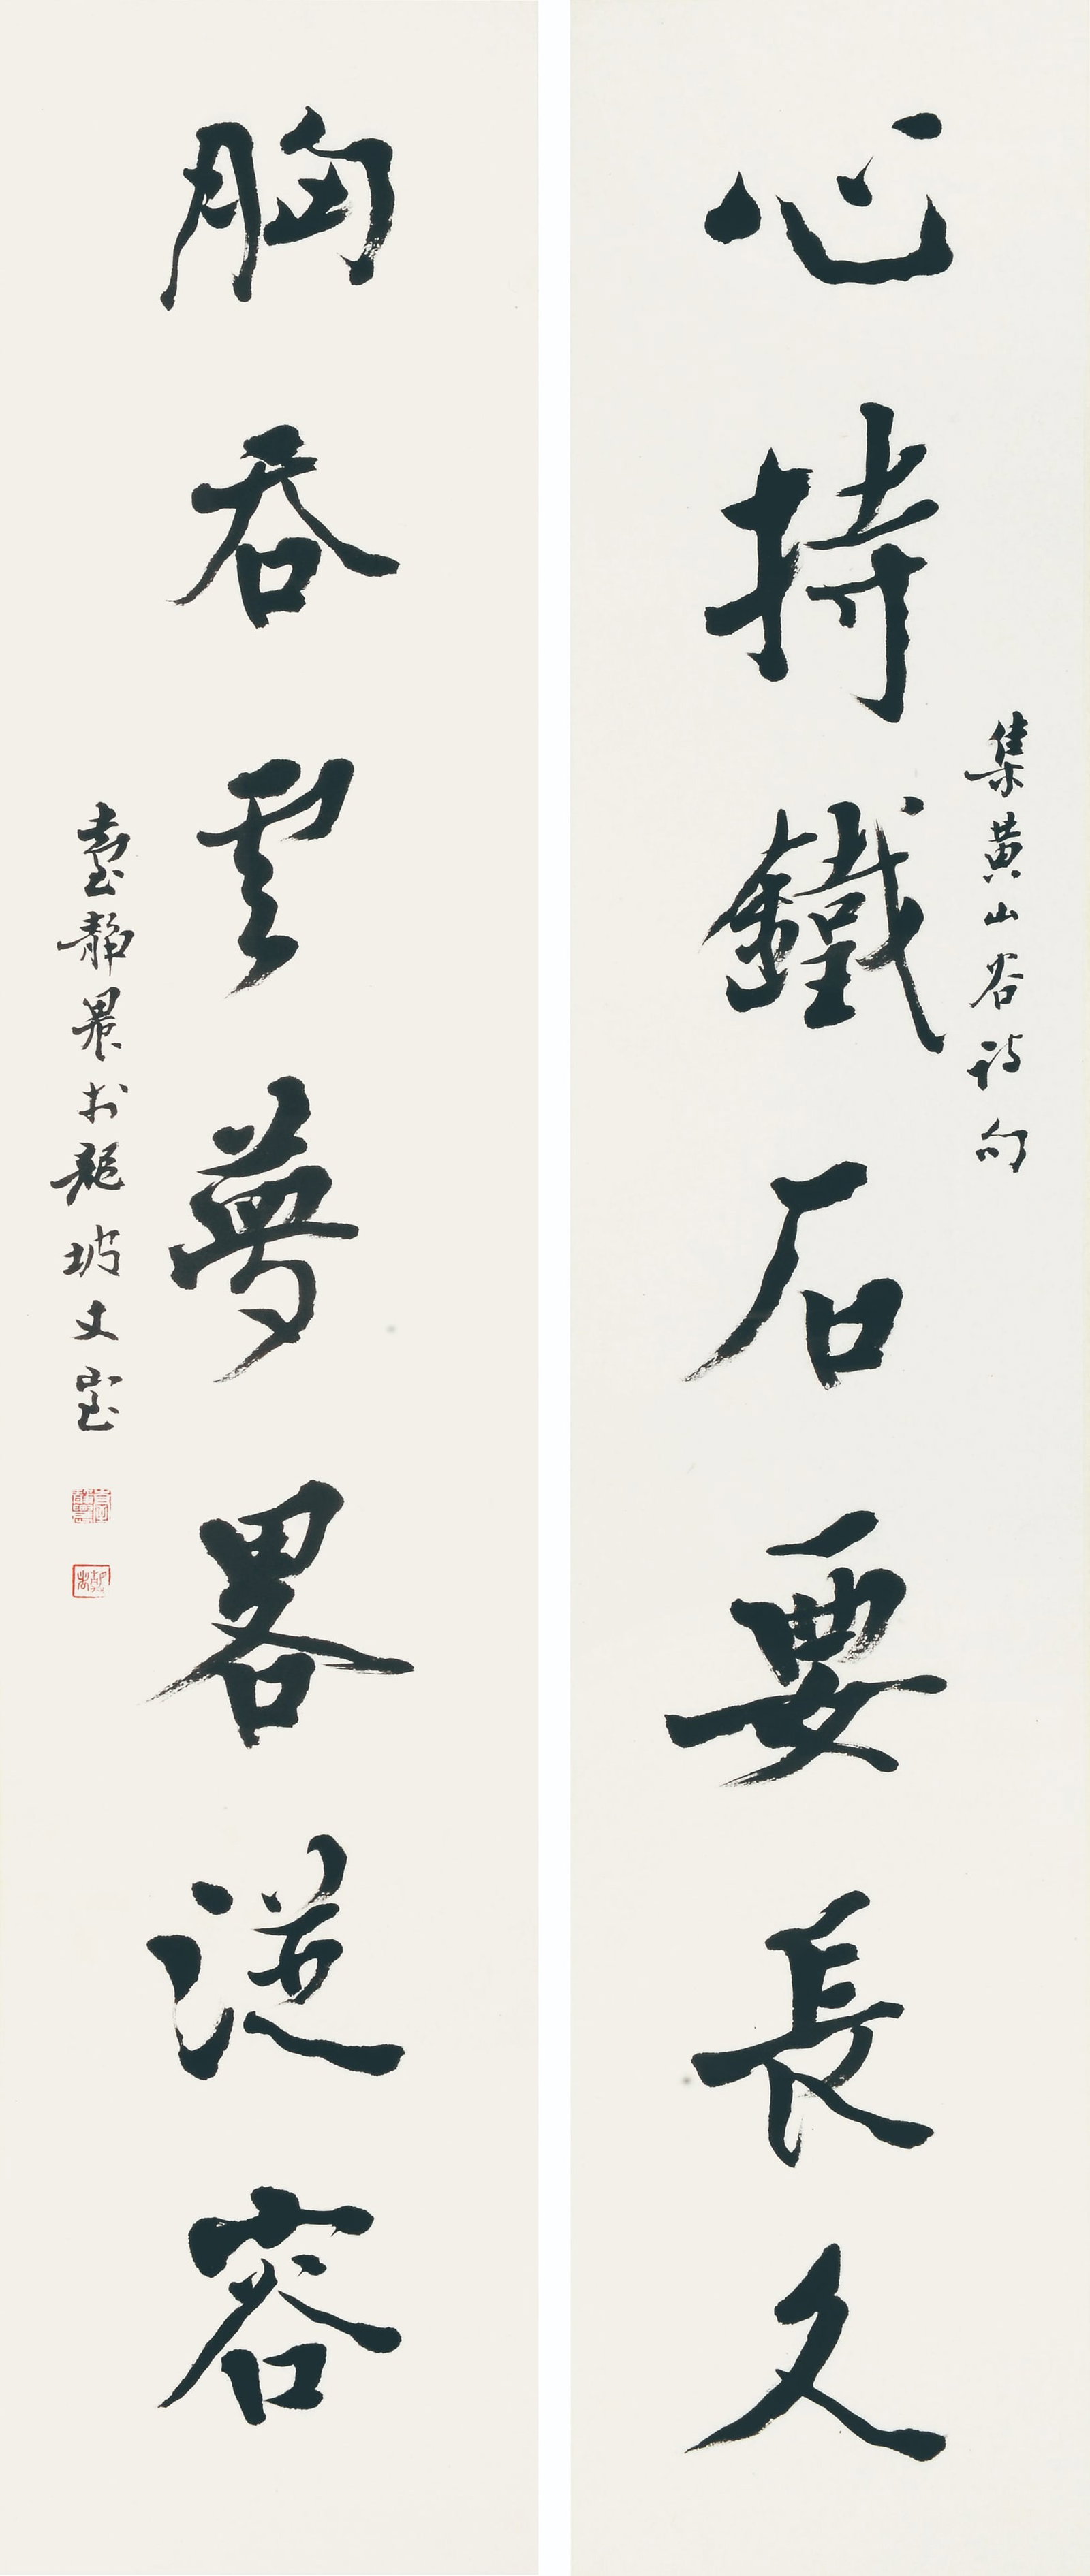 集黄山谷詩句
心持鐵石要長久
胸吞雲夢畧從容
臺靜農於龍坡丈室